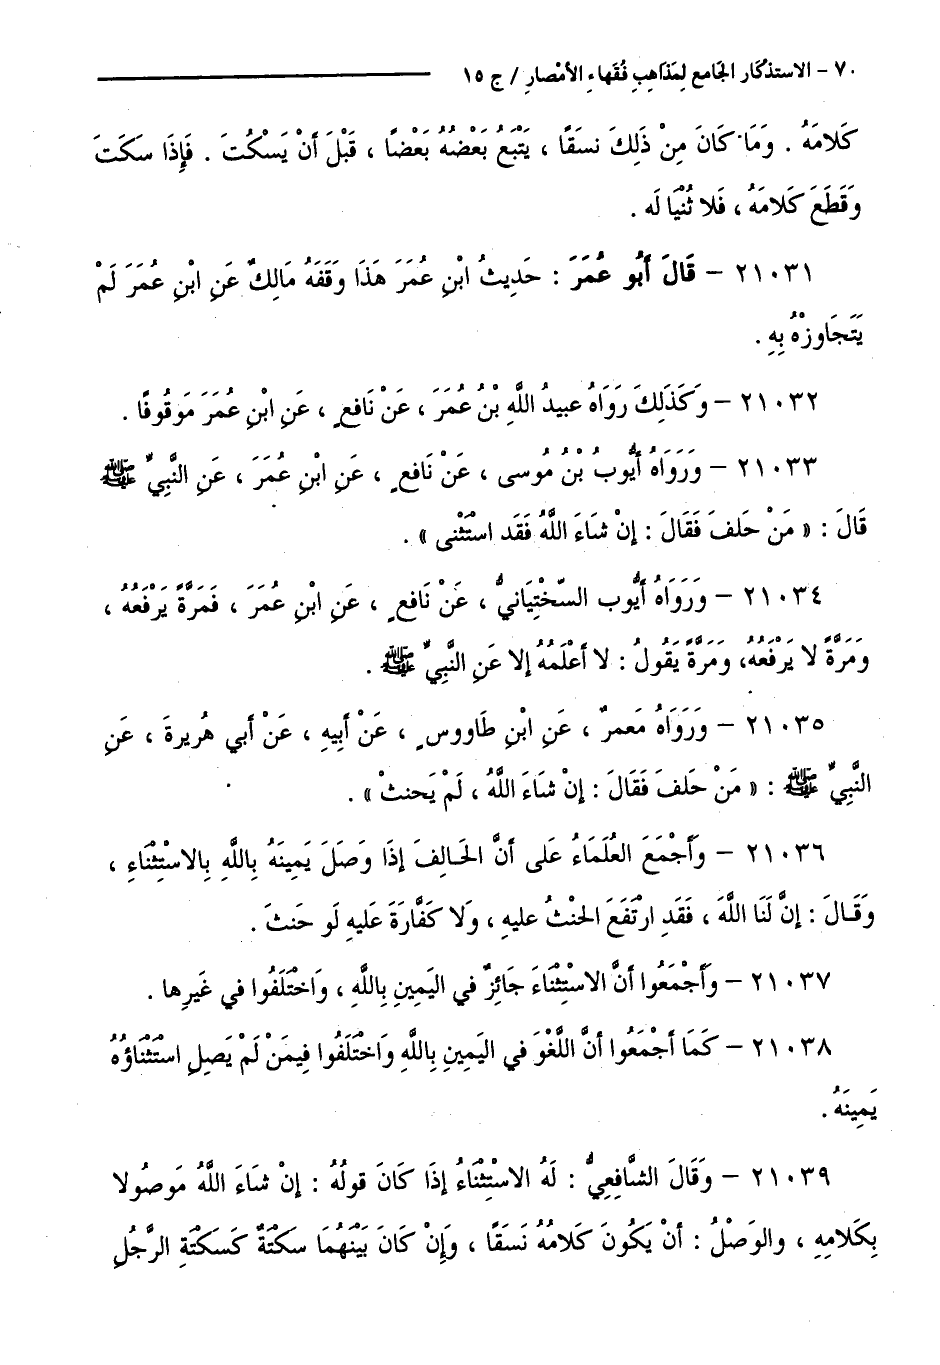 ٧٠ - الاستذكار الجامع لمذاهبِ فُقَهاءِ الأمْصارِ / ج ١٥
كَلامَهُ . وَمَا كَانَ مِنْ ذَلِكَ نسَقًا ، يَتْبَعُ بَعْضُهُ بَعْضًا ، قَبْلَ أنْ يَسْكُتَ . فَإِذَا سَكَتَ
وَقَطَعَ كَلامَهُ ، فَلا ثُنْيَا لَه .
٢١٠٣١ – قَالَ أَبُو عُمَرَ : حَدِيثُ ابْنِ عُمَرَ هَذَا وَقَفَهُ مَالِكٌ عَنِ ابْنِ عُمَرَ لَمْ
يَتَجَاوَزْهُ بِهِ .
٢١٠٣٢ – وَكَذَلِكَ رَوَاهُ عبيدُ اللَّهِ بْنُ عُمَرَ ، عَنْ نَافعٍ ، عَنِ ابْنِ عُمَرَ مَوقُوفًا .
٢١٠٣٣ – وَرَوَاهُ أيُّوبُ بْنُ مُوسى ، عَنْ نَافعٍ ، عَنِ ابْنِ عُمَرَ ، عَنِ النَّبِيِّ ﷺ
قَالَ : « مَنْ حَلفَ فَقَالَ : إنْ شَاءَ اللَّهُ فَقَد اسْتَثْنى » .
٢١٠٣٤ – وَرَوَاهُ أيُّوب السَّخْتِيَانيُّ ، عَنْ نَافعٍ ، عَنِ ابْنِ عُمَرَ ، فَمَرَّةً يَرْفَعُهُ ،
وَمَرَّةً لا يَرْفَعُهُ، وَمَرَّةً يَقُولُ : لا أعْلَمُهُ إلا عَنِ النَّبِيِّ ﷺ .
٢١٠٣٥ – وَرَوَاهُ مَعمرٌ ، عَنِ ابْنِ طَاووسٍ ، عَنْ أبيهِ ، عَنْ أبي هُريرةَ ، عَنِ
النَّبِيِّ ﷺ : « مَنْ حَلفَ فَقَالَ : إنْ شَاءَ اللَّهُ ، لَمْ يَحنثْ » .
٢١٠٣٦ – وَأجْمَعَ العُلَمَاءُ عَلى أنَّ الحَالِفَ إذَا وَصَلَ يَمِينَهُ بِاللَّهِ بِالاسْتِثْنَاءِ ،
وَقَالَ : إنَّ لَنَا اللَّهَ ، فَقَدِ ارْتَفَعَ الحنْثُ عليهِ ، وَلا كَفَّارَةَ عَليهِ لَو حَنثَ .
٢١٠٣٧ – وَأَجْمَعُوا أنَّ الاسْتِثْنَاءَ جَائِزٌ في اليَمِينِ بِاللَّهِ ، وَاخْتَلَفُوا في غَيرِها .
٢١٠٣٨ – كَمَا أجْمَعُوا أنَّ اللَّغْوَ في اليَمِينِ بِاللَّهِ وَاخْتَلَفُوا فِيمَنْ لَمْ يَصِلِ اسْتَثْنَاؤُهُ
يَمِينَهُ .
٢١٠٣٩ – وَقَالَ الشَّافِعِيُّ : لَهُ الاسْتِثْنَاءُ إذَا كَانَ قولُهُ : إنْ شَاءَ اللَّهُ مَوصُولا
بِكَلامِهِ ، والوَصْلُ : أنْ يَكُونَ كَلامُهُ نَسَقًا ، وَإِنْ كَانَ بَيْنَهُمَا سَكْتَةٌ كَسَكْتَةِ الرَّجُلِ